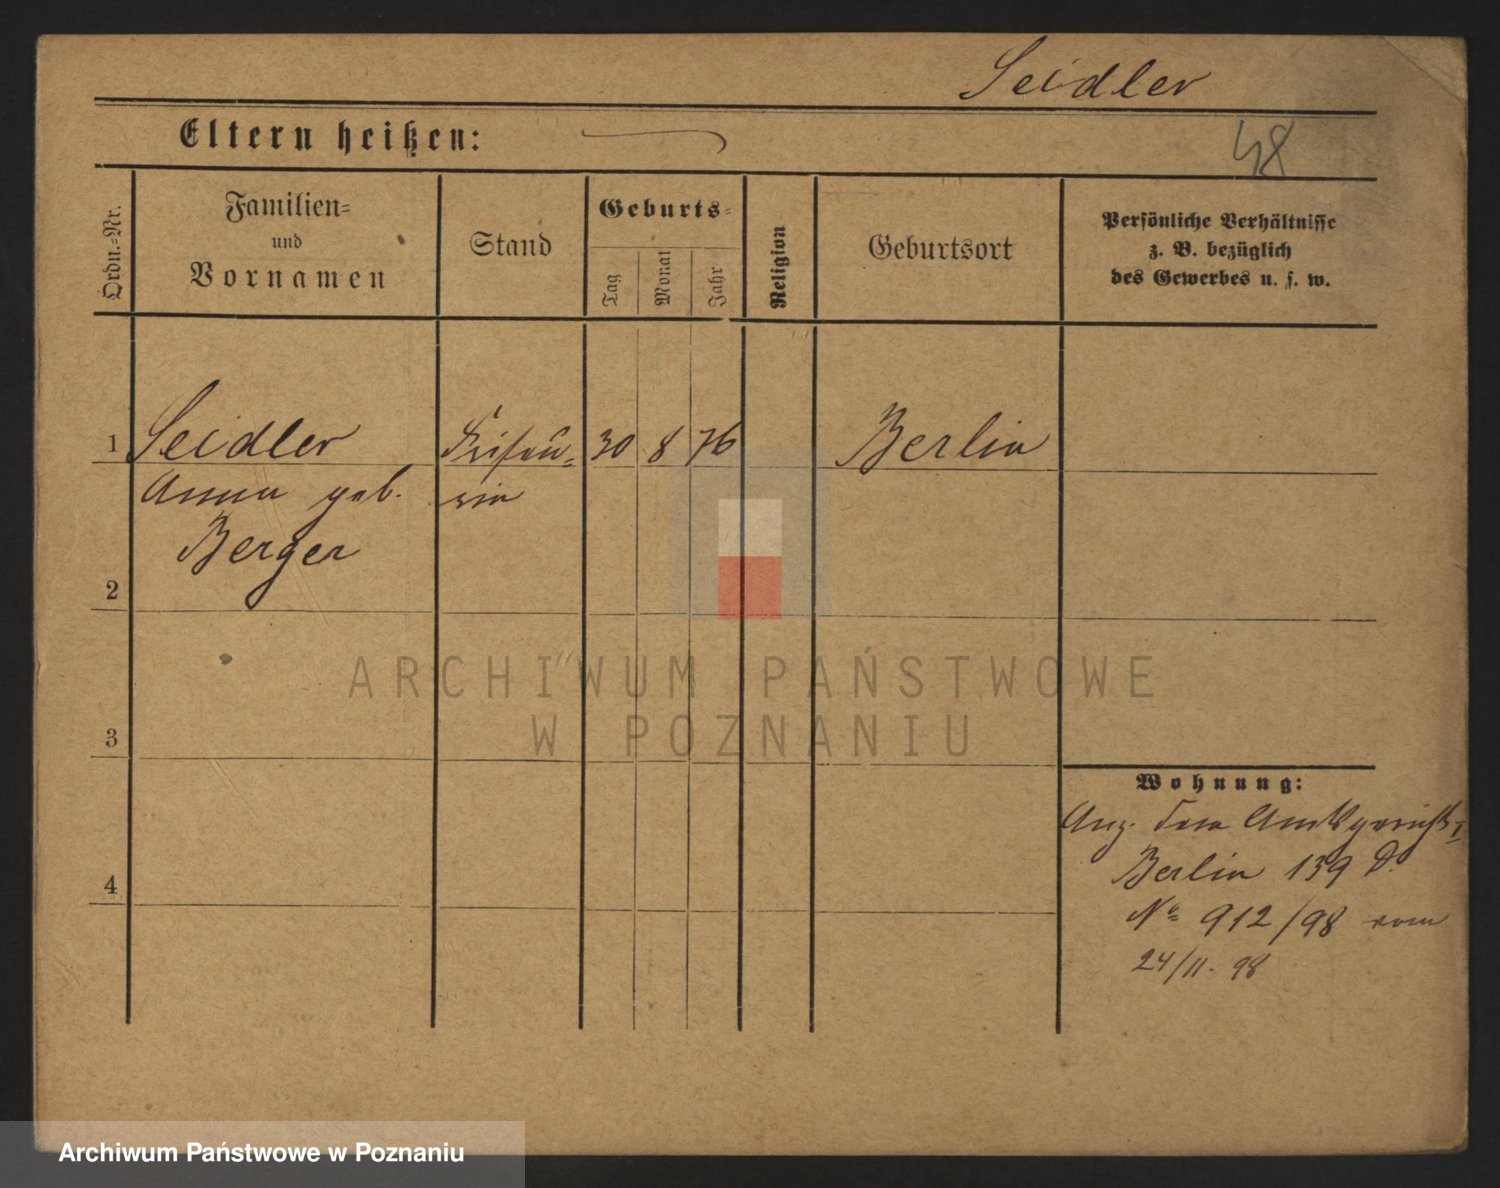 Seidler
Eltern heißen:
48
Ordn.=Nr.
Familien=
und
Vornamen
Stand
Geburts=
Tag
Monat
Jahr
Religion
Geburtsort
Persönliche Verhältnisse
z. B. bezüglich
des Gewerbes u. s. w.
1 Seidler Friseu= 30 8 76 Berlin
Anna geb. rin
Berger
2
3
4
Wohnung:
Anz. dem Amtsgericht I
Berlin 139 D.
No 912/98 vom
24/11. 98
ARCHIWUM PAŃSTWOWE
W POZNANIU
Archiwum Państwowe w Poznaniu